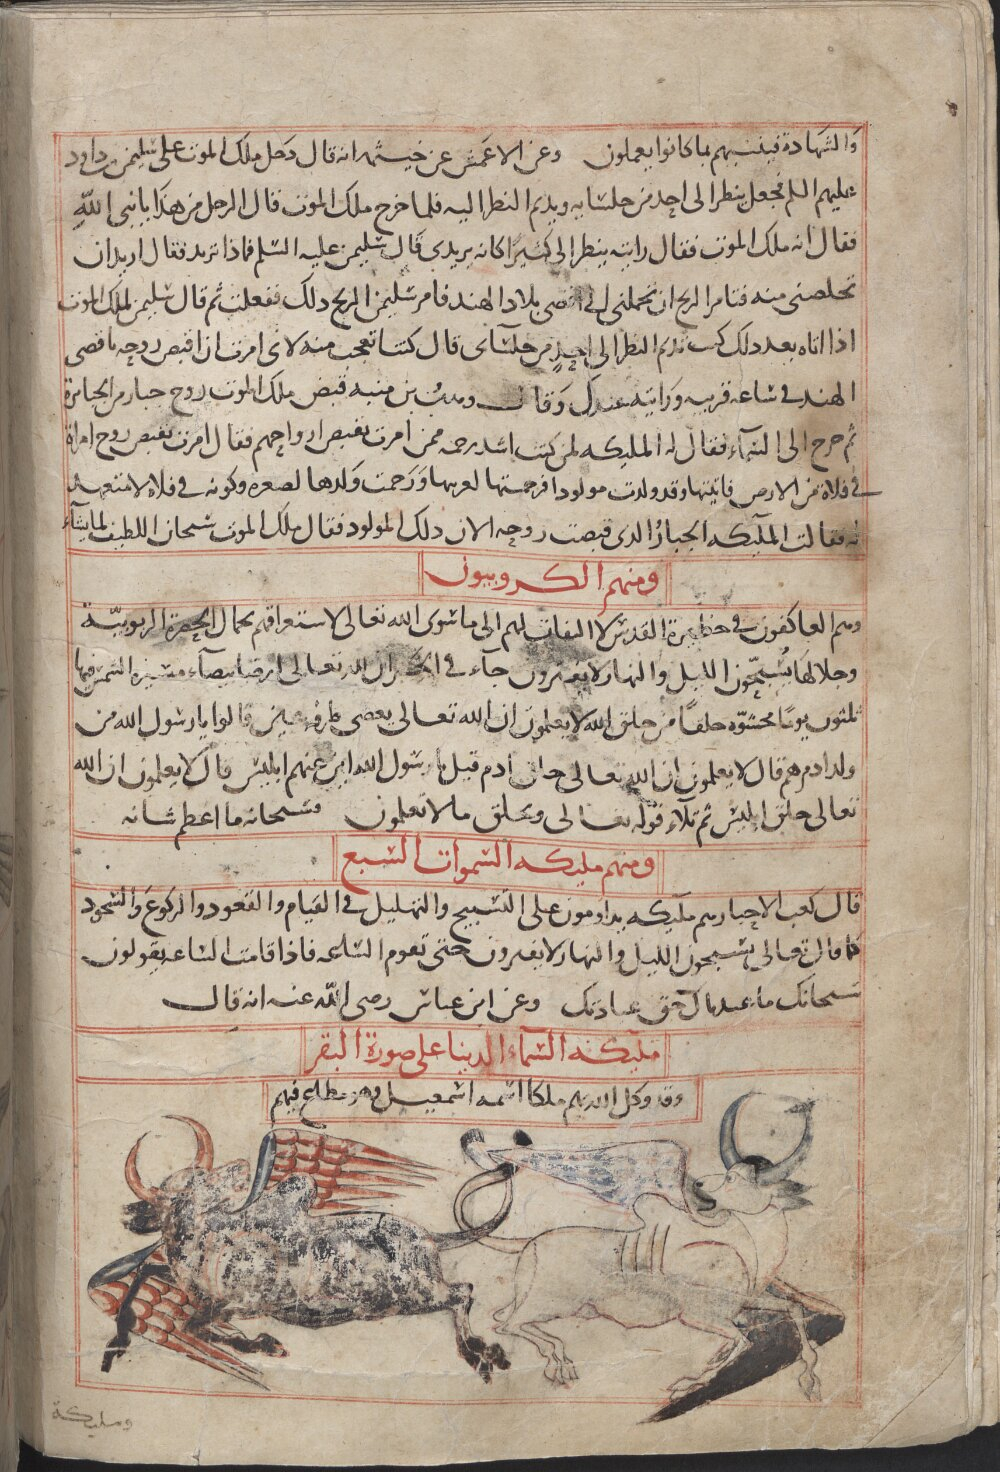 والشهادة فينبيهم بما كانوا يعملون وعن الاعمش عن خيثمه انه قال دخل ملك الموت على سليمن بن داود
عليهم السلم فجعل ينظر الى احد من جلسايه ويديم النظر اليه فلما خرج ملك الموت قال الرجل من هذا يا نبى الله
فقال انه ملك الموت فقال رايته ينظر الى كثيرا كانه يريدى قال سليمن عليه السلم فماذا تريد فقال اريد ان
تخلصنى منه فتامر الريح ان تحملنى الى اقصى بلاد الهند فامر سليمن الريح ذلك ففعلت ثم قال سليمن لملك الموت
اذا اتاه بعد ذلك كنت تديم النظر الى احد من جلسآى قال كنت اتعجب منه لانى امرت ان اقبض روحه باقصى
الهند فى ساعه قريبه ورايته عندك وقال وهب بن منبه قبض ملك الموت روح جبار من الجبابرة
ثم عرج الى السمآء فقال له المليكه لمن كنت اشد رحمه ممن امرت بقبض ارواحهم فقال امرت بقبض روح امراة
فى فلاة من الارض فاتيتها وقد ولدت مولودا فرحمتها لغربتها ورحمت ولدها لصغره وكونه فى فلاة لا متعهد
له فقالت المليكه الجبار الذى قبضت روحه الان ذلك المولود فقال ملك الموت سبحان اللطيف لما يشآء
ومنهم الكروبيون
وهم العاكفون فى حظيرة القدس لا التفات لهم الى ما سوى الله تعالى لاستغراقهم بجمال الحضرة الربوبية
وجلالها يسبحون الليل والنهار لا يفترون جآء فى الخبر ان لله تعالى ارضا بيضآء مسيرة الشمس فيها
ثلثون يوما محشوه خلقا من خلق الله لا يعلمون ان الله تعالى يعصى طرفة عين قالوا يا رسول الله من
ولد ادم هم قال لا يعلمون ان الله تعالى خلق ادم قيل يا رسول الله اين عنهم ابليس قال لا يعلمون ان الله
تعالى خلق ابليس ثم تلاء قوله تعالى ويخلق ما لا تعلمون فسبحانه ما اعظم شانه
ومنهم مليكه السموات السبع
قال كعب الاحبار هم مليكه يداومون على التسبيح والتهليل فى القيام والقعود والركوع والسجود
كما قال تعالى يسبحون الليل والنهار لا يفترون حتى تقوم الساعه فاذا قامت الساعه يقولون
سبحانك ما عبدناك حق عبادتك وعن ابن عباس رضى الله عنه انه قال
مليكة السمآء الدنيا على صورة البقر
وقد وكل الله بهم ملكا اسمه اسمعيل وهو مطلع فيهم
ومليكة